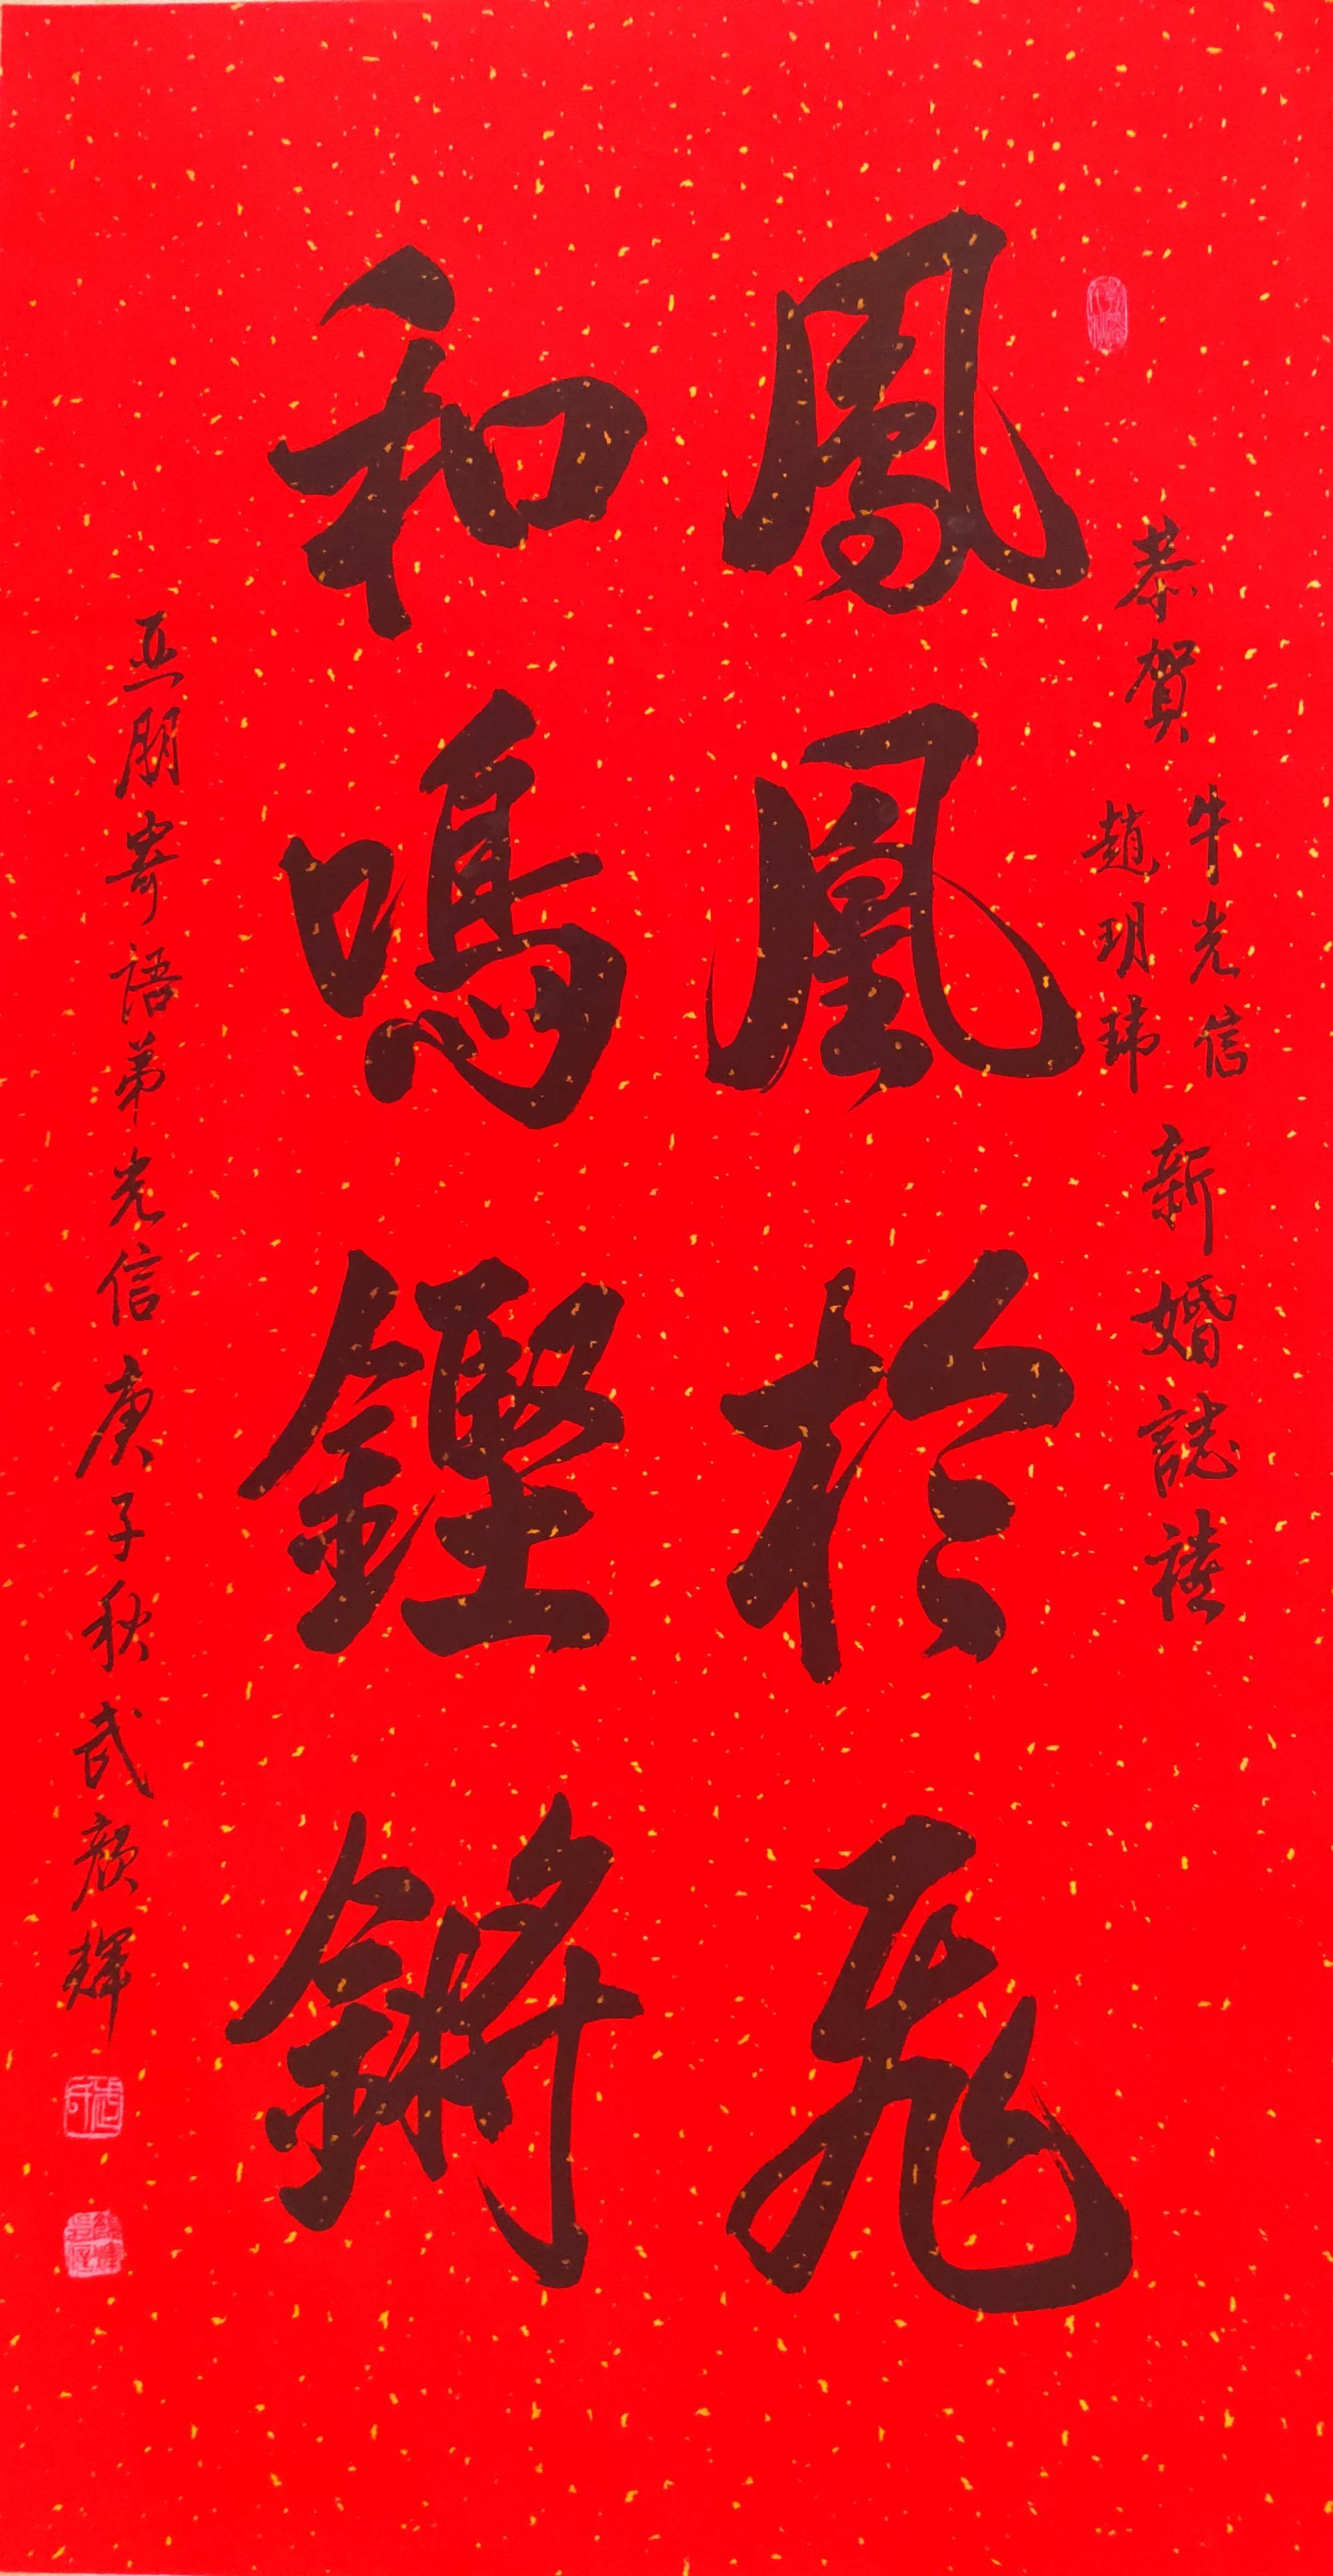 恭賀
牛光信
趙玥瑋
新婚誌禧
鳳凰於飛
和鳴鏗鏘
亞朋寄語弟光信 庚子秋 武顏輝